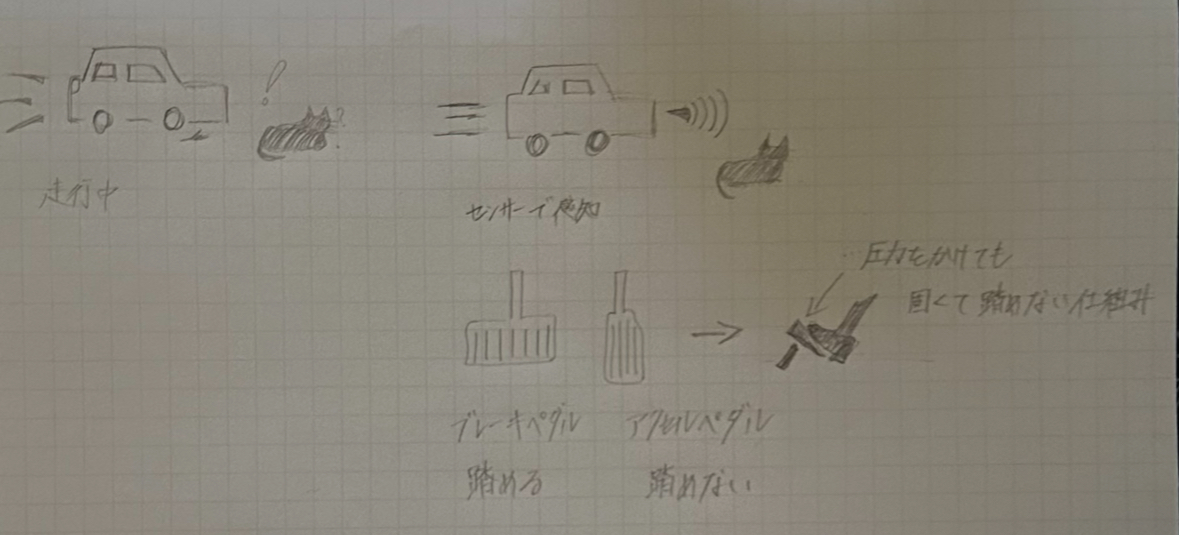 !
走行中
センサーで検知
圧力をかけても
固くて踏めない仕組み
ブレーキペダル
アクセルペダル
踏める
踏めない